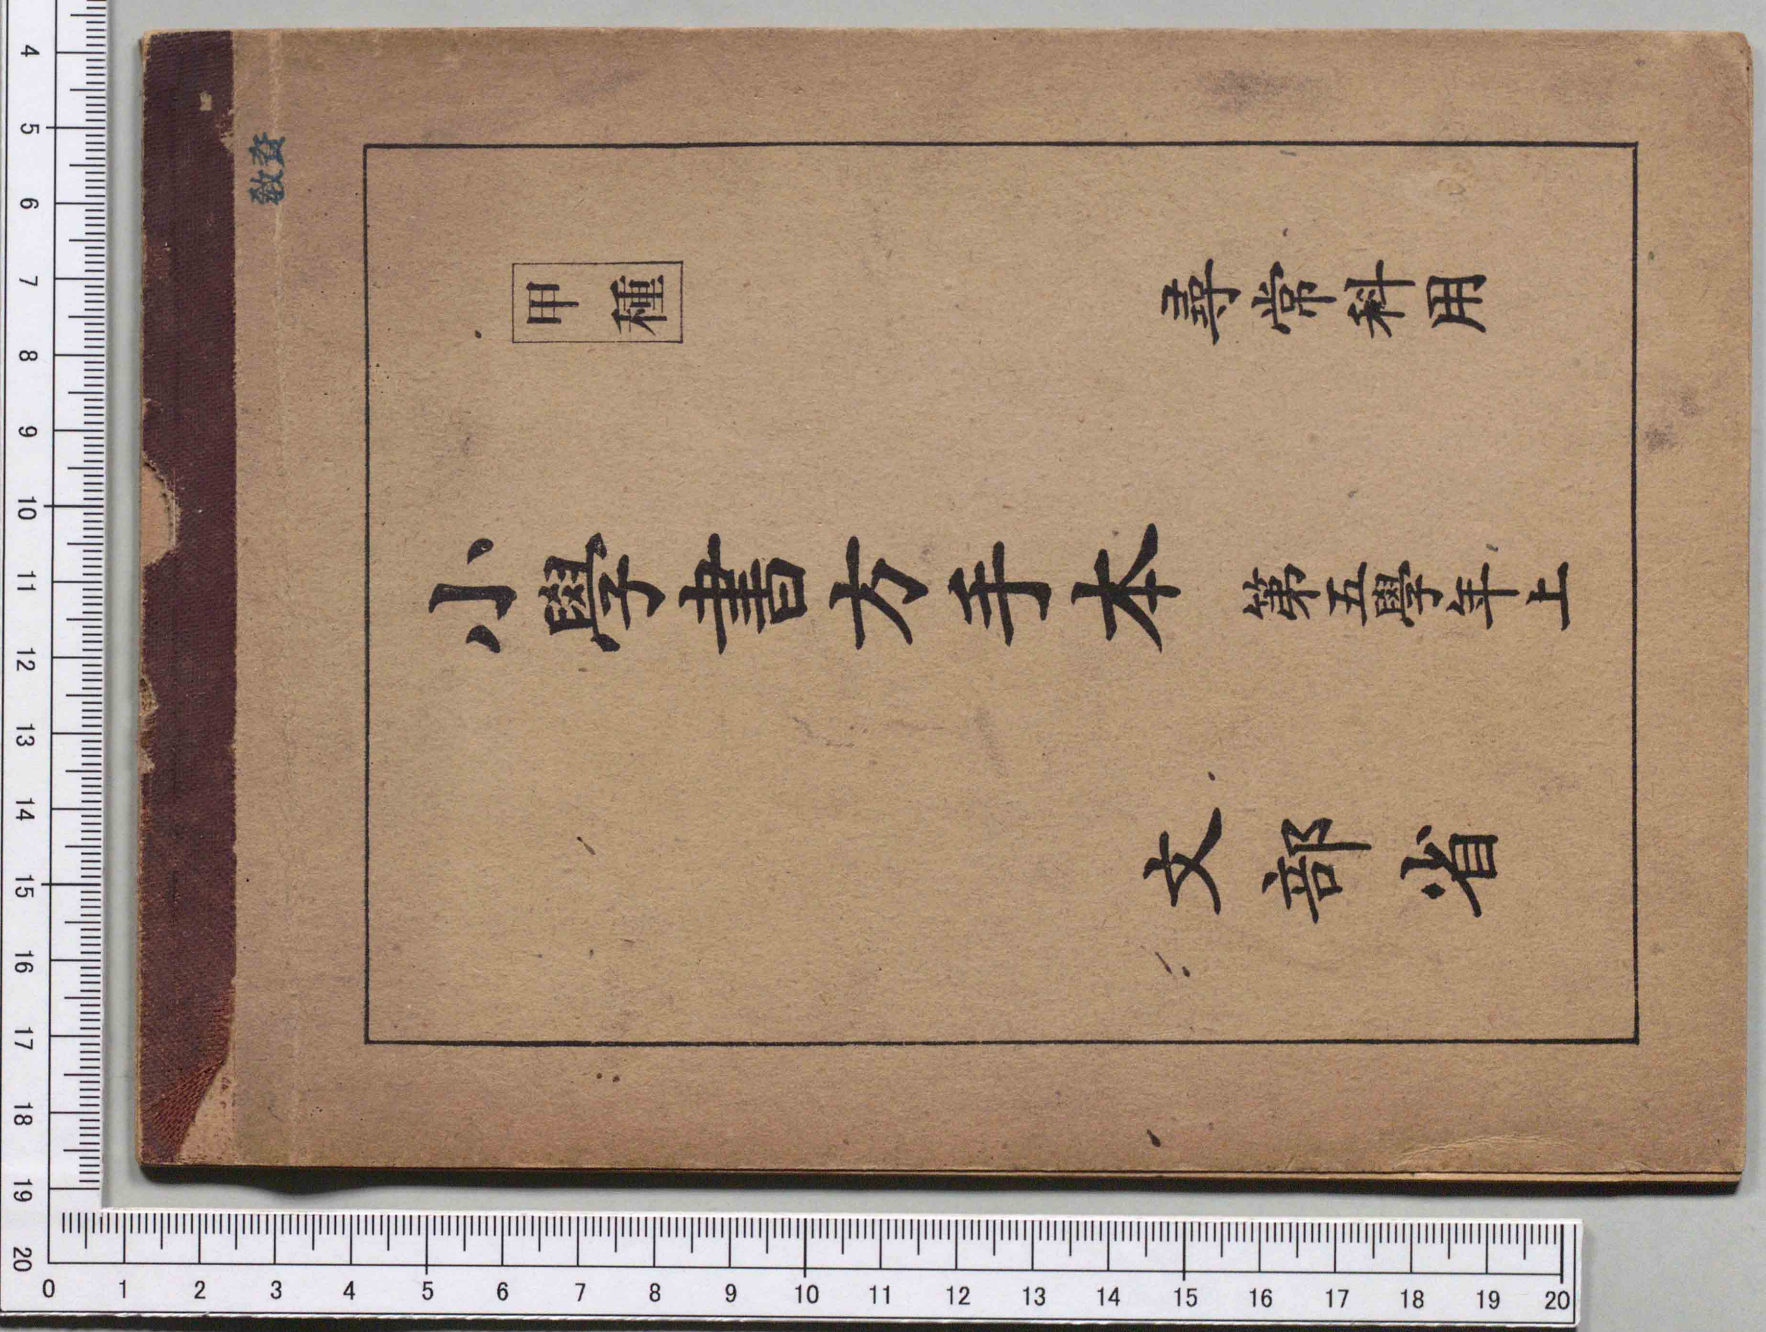 資教
甲種
尋常科用
小學書方手本 第五學年上
文部省
4
5
6
7
8
9
10
11
12
13
14
15
16
17
18
19
20
0 1 2 3 4 5 6 7 8 9 10 11 12 13 14 15 16 17 18 19 20